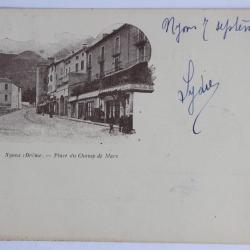 Nyons 7 septem
Lydie
Nyons (Drôme). — Place du Champ de Mars